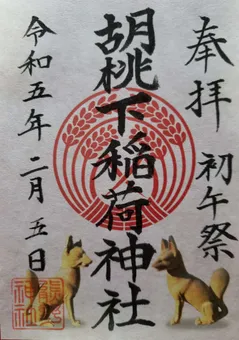 奉拝
初午祭
胡桃下稲荷神社
令和五年二月五日